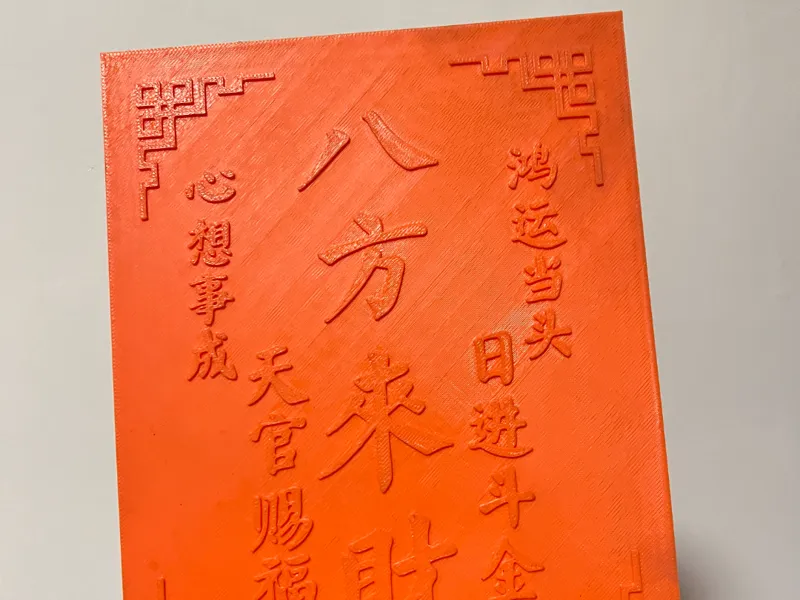 鸿运当头
日进斗金
八方來財
天官赐福
心想事成